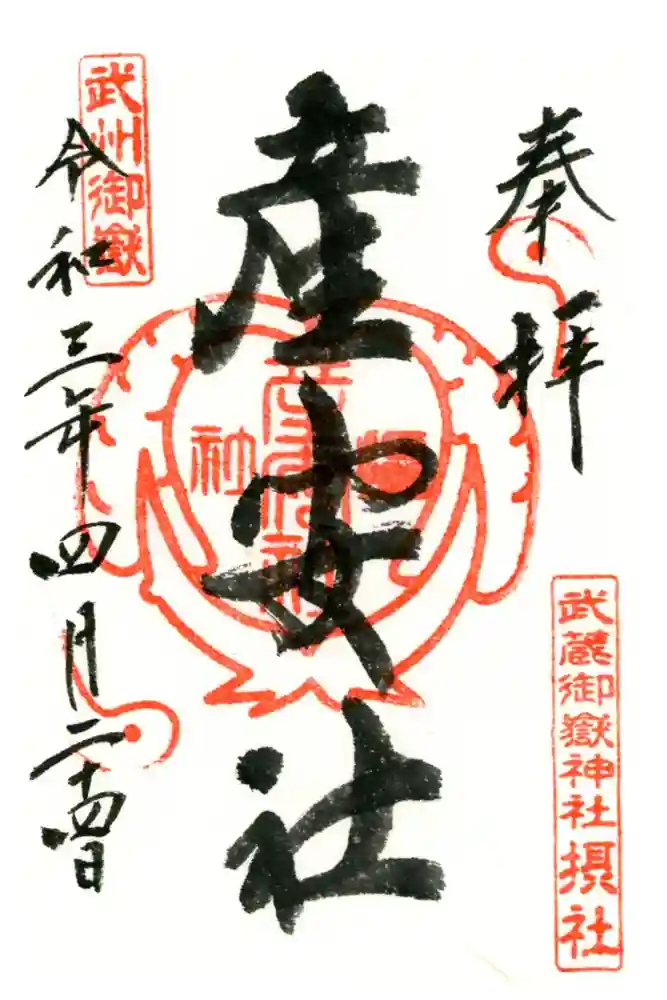 奉拝
武蔵御嶽神社摂社
産安社
社
武州御嶽
令和三年四月二十四日